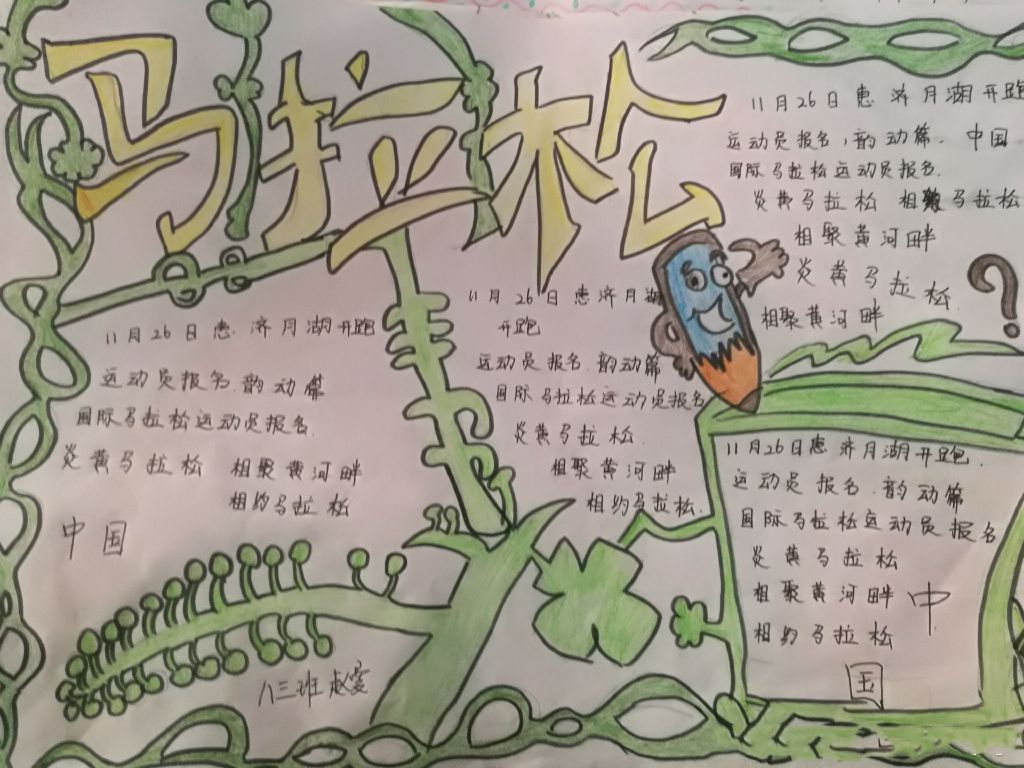 马拉松
11月26日惠 济月湖开跑
运动员报名,韵动篇. 中国
国际马拉松运动员报名.
炎黄马拉松 相 马拉松
相聚黄河畔
炎黄马拉松.
相聚黄河畔
?
11月26日惠. 济月湖开跑
运动员报名.韵动篇
国际马拉松运动员报名.
炎黄马拉松 相聚黄河畔
相约马拉松
中国
11月26日惠济月湖
开跑
运动员报名.韵动篇
国际马拉松运动员报名
炎黄马拉松.
相聚黄河畔
相约马拉松.
11月26日惠济月湖开跑.
运动员报名.韵动篇
国际马拉松运动员报名
炎黄马拉松
相聚黄河畔
相约马拉松
中
国
八三班赵雯